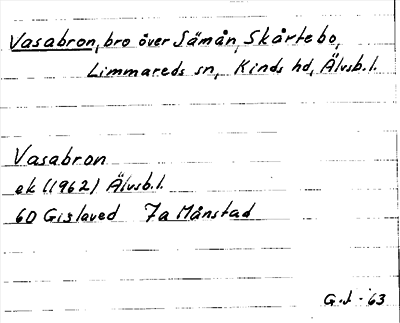 Vasabron, bro över Sämån, Skårtebo,
Limmareds sn, Kinds hd, Älvsb. l.
Vasabron
ek (1962) Älvsb. l.
60 Gislaved 7a Månstad
G.J. -63